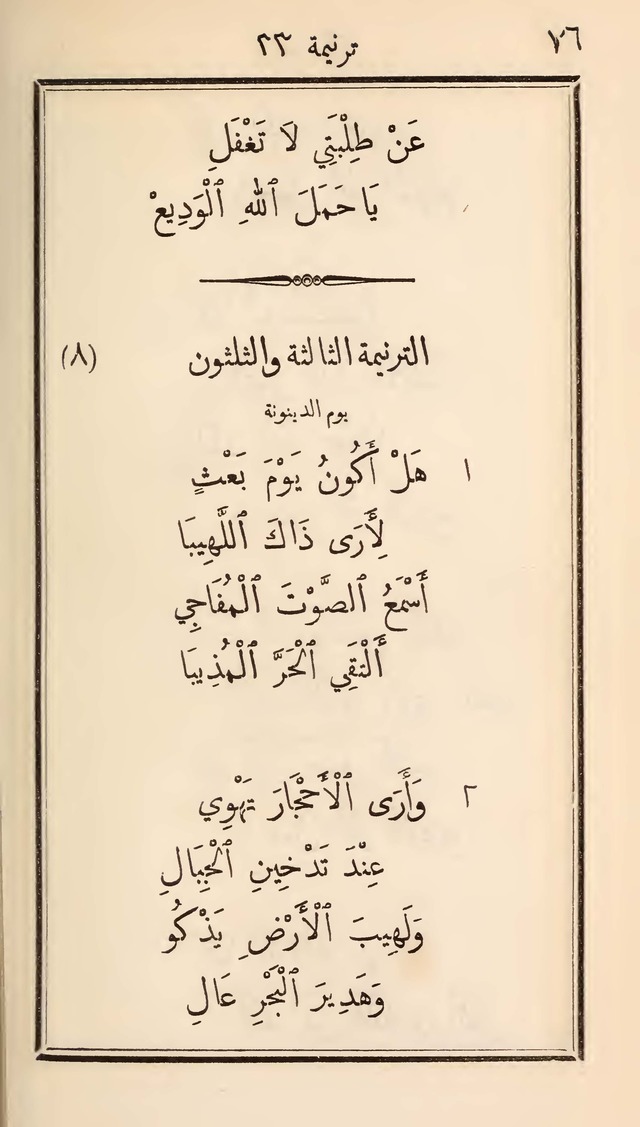 ٧٦
ترنيمة ٣٣
عَنْ طِلْبَتِي لَا تَغْفَلِ
يَا حَمَلَ ٱللهِ ٱلْوَدِيعْ
الترنيمة الثالثة والثلثون (٨)
يوم الدينونة
١ هَلْ أَكُونُ يَوْمَ بَعْثٍ
لِأَرَى ذَاكَ ٱللَّهِيبَا
أَسْمَعُ ٱلصَّوْتَ ٱلْمُفَاجِي
أَلْتَقِي ٱلْحَرَّ ٱلْمُذِيبَا
٢ وَأَرَى ٱلْأَحْجَارَ تَهْوِي
عِنْدَ تَدْخِينِ ٱلْجِبَالِ
وَلَهِيبَ ٱلْأَرْضِ يَذْكُو
وَهَدِيرَ ٱلْبَحْرِ عَالِ